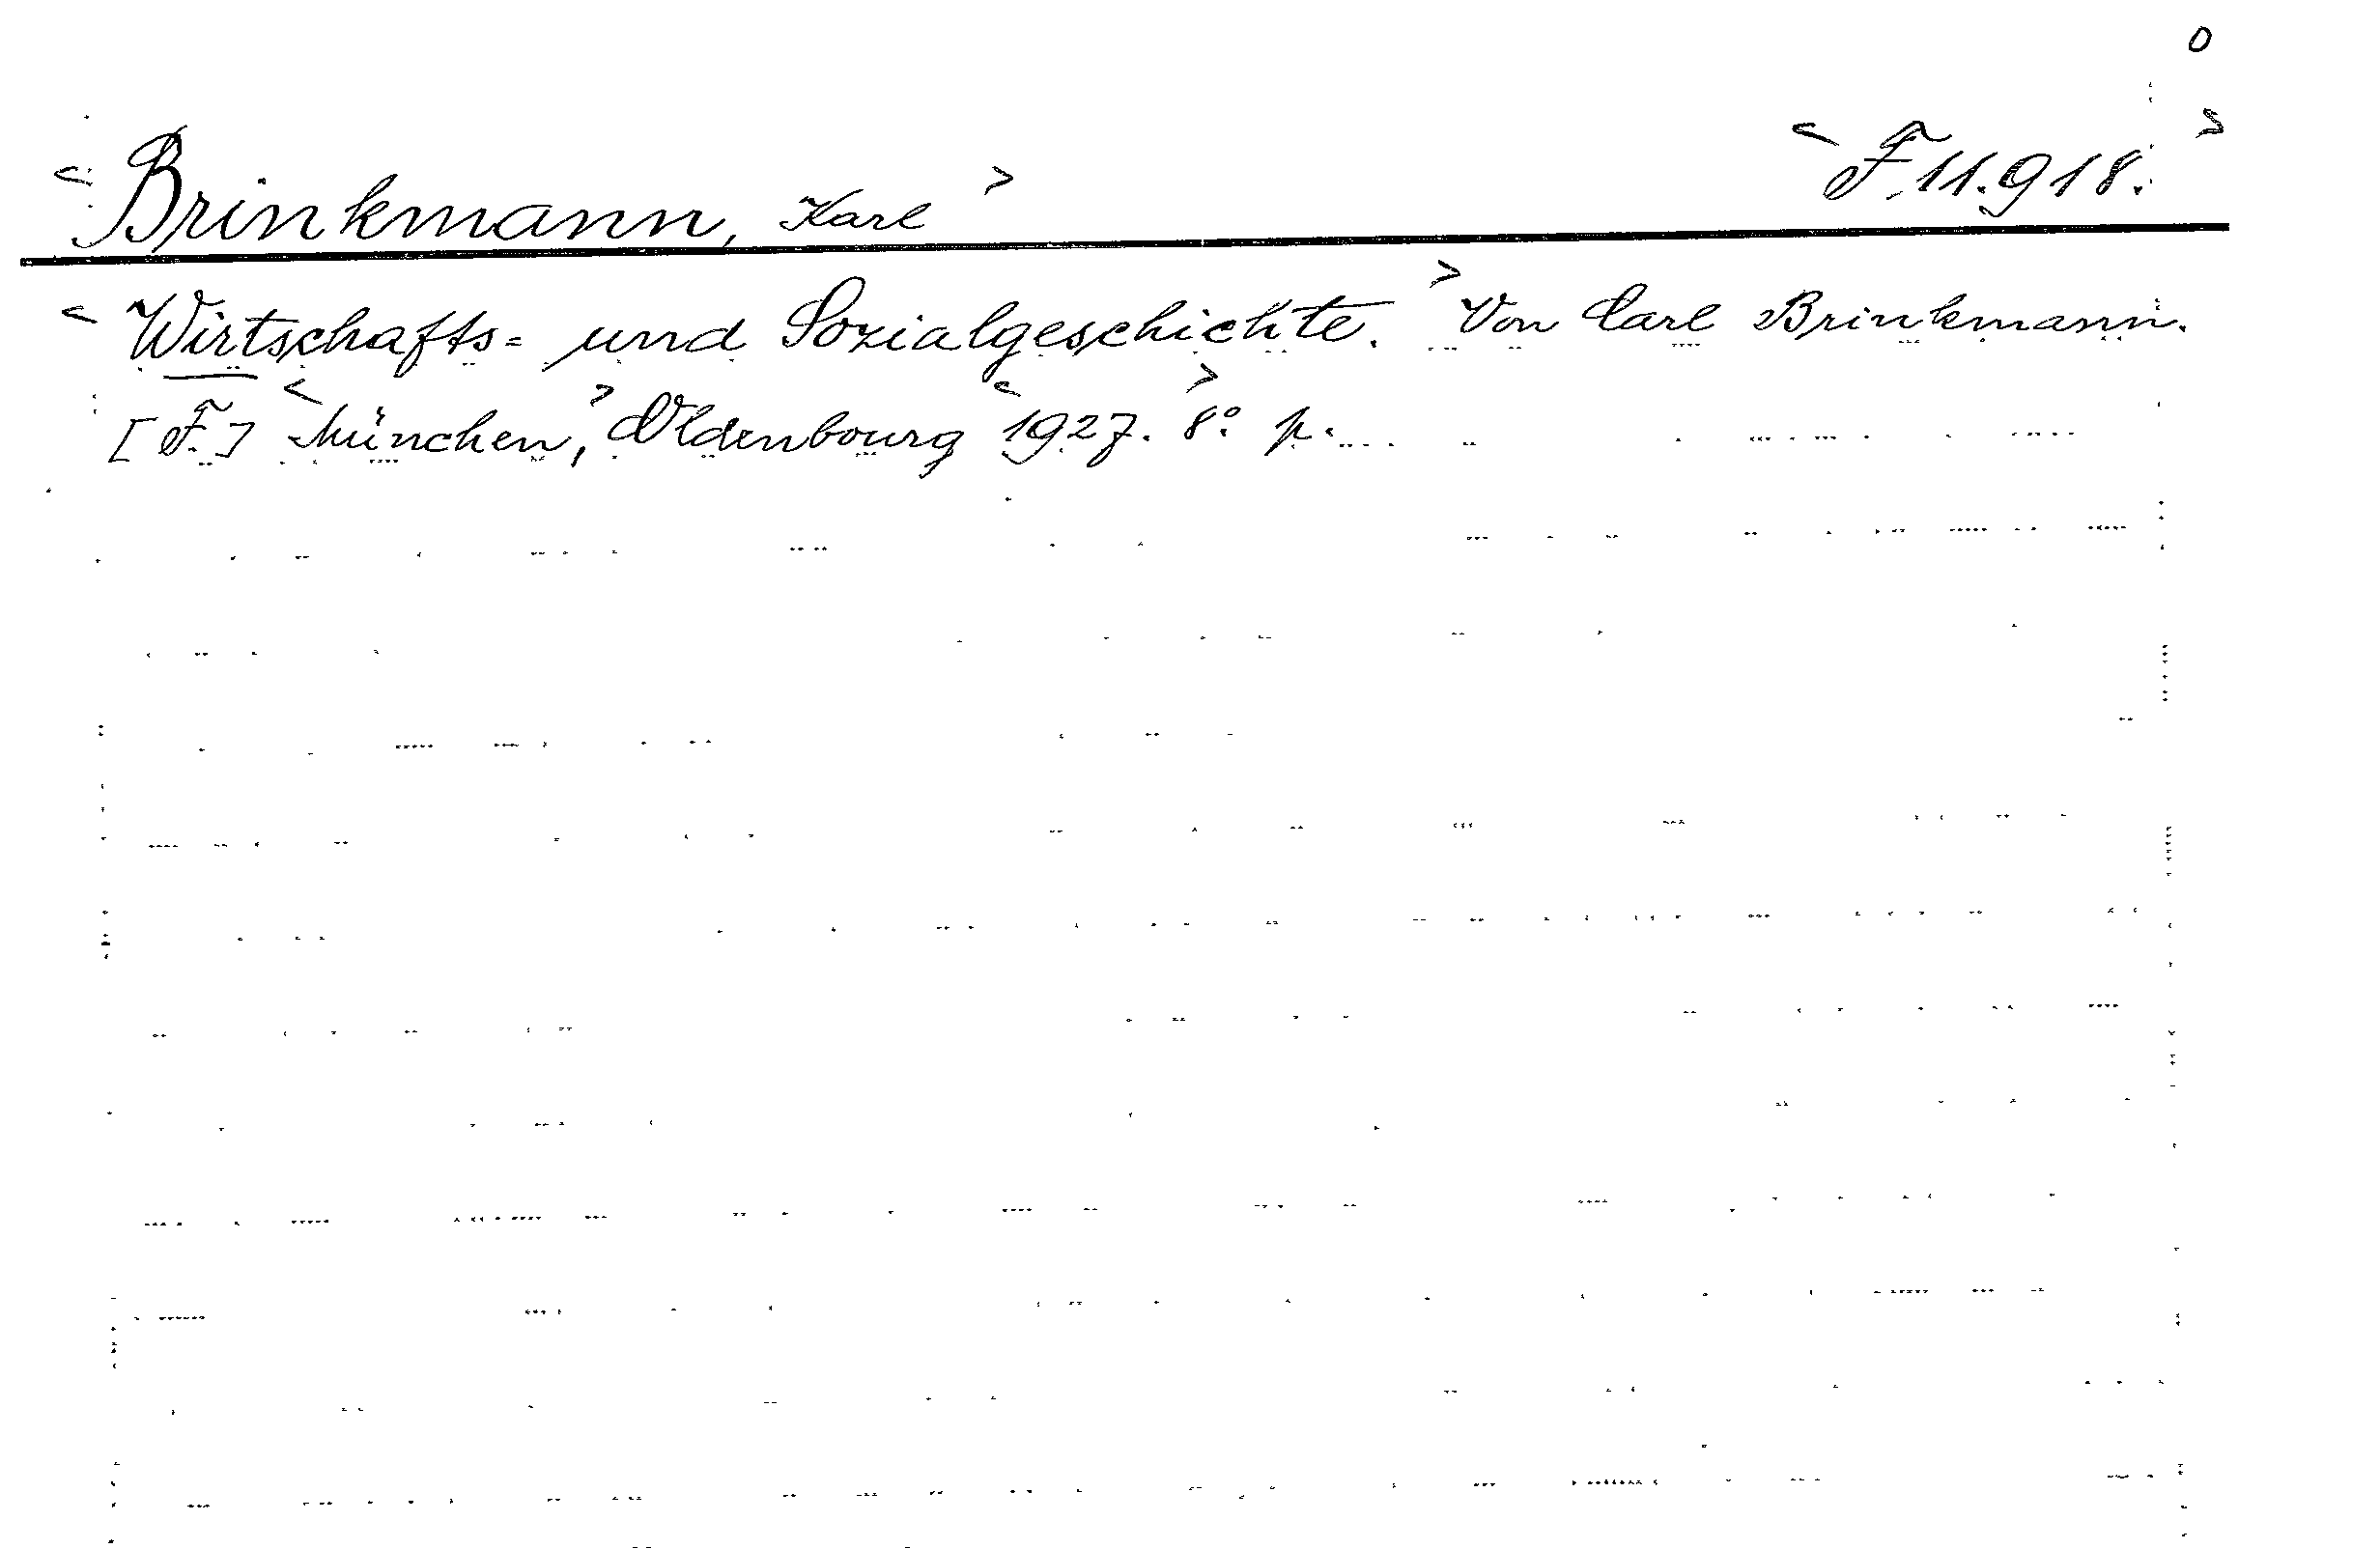 0
<Brinkmann, Karl> <F 11.918.>
<Wirtschafts= und Sozialgeschichte.> Von Carl Brinkmann.
[F.] <München,> Oldenbourg <1927.> 8° p.